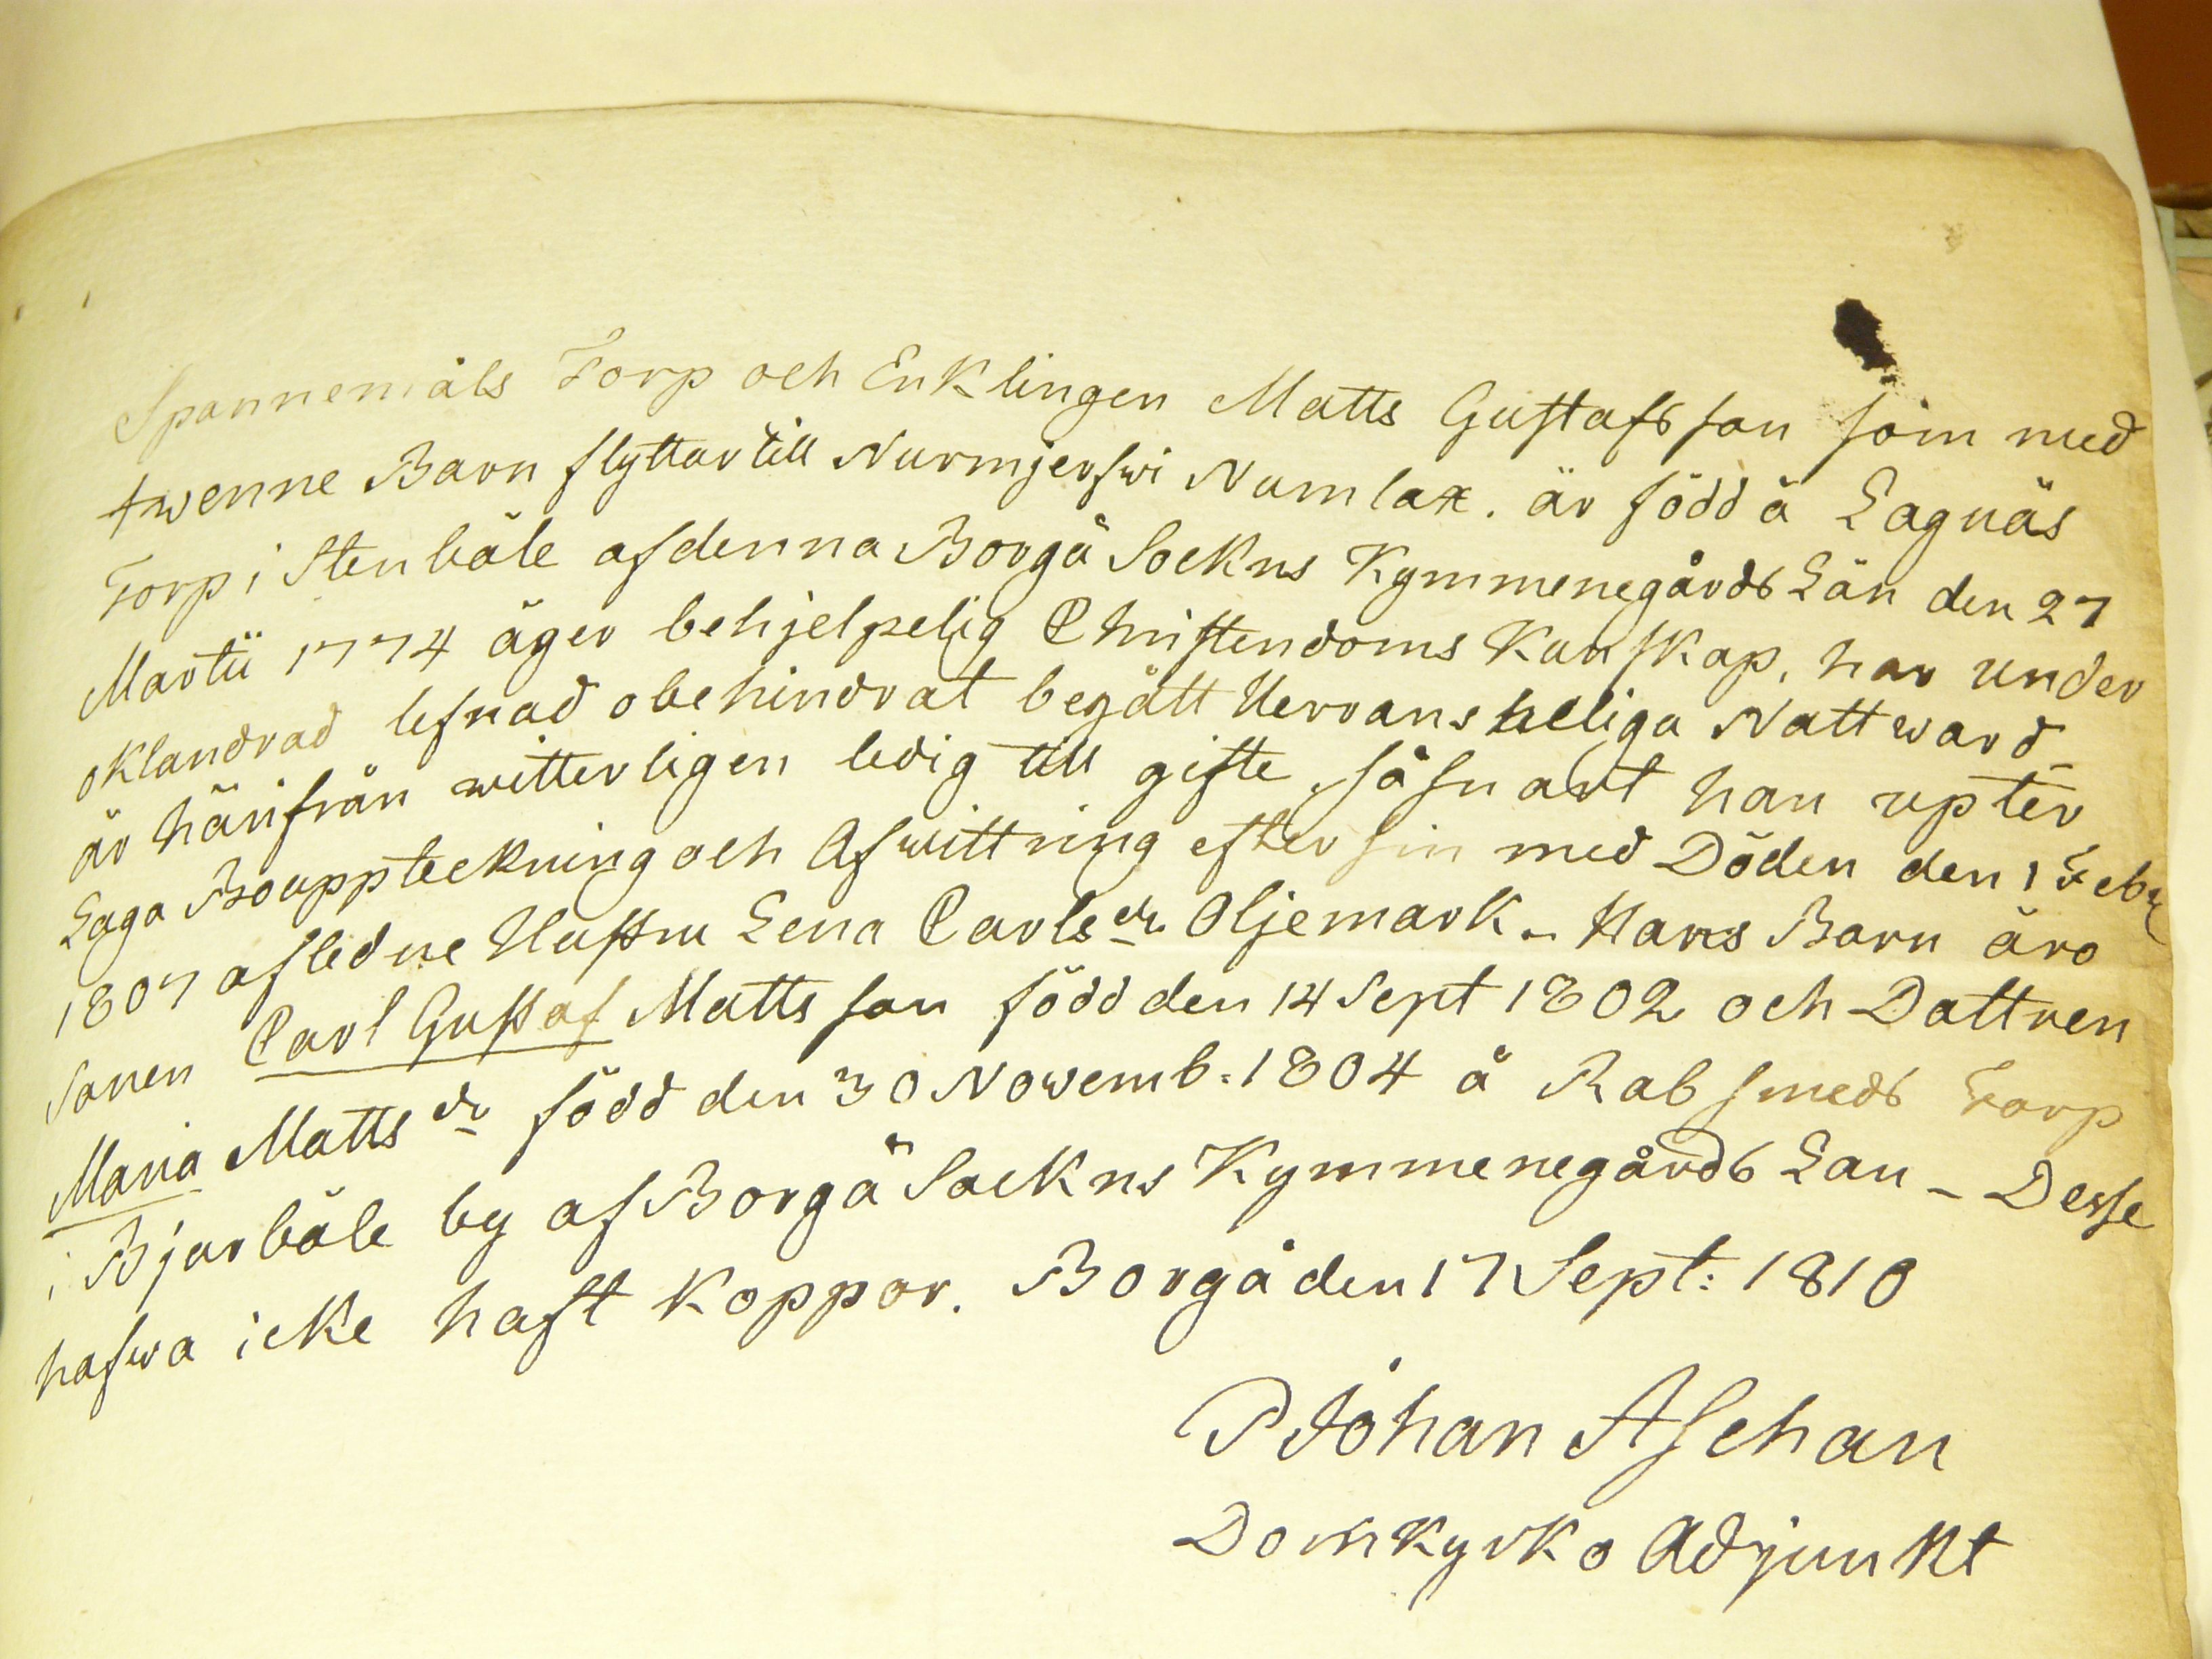 Spannemåls Torp och Enklingen Matts Gustafsson som med
twenne Barn flyttar till Nurmjerfwi Numlax. är född å Lagnäs
Torp i Stenböle af denna Borgå Sockns Kymmenegårds Län den 27
Martii 1774 äger behjelpelig Christendoms Kunskap, har under
oklandrad lefnad obehindrat begått Herrans heliga Nattward_
är härifrån witterligen ledig till gifte, så snart han upter
Laga Bouppteckning och Afwittring efter sin med Döden den 1 Feb:
1807 afledne Hustru Lena Carlsdr Oljemark. Hans Barn äro
Sonen Carl Gustaf Mattsson född den 14 Sept 1802 och Dottren
Maria Mattsdr född den 30 Novemb. 1804 å Rabsmeds Torp
i Bjurböle by af Borgå Sockns Kymmenegårds Län - Desse
hafwa icke haft Koppor. Borgå den 17 Sept: 1810
P Johan Aschan
Domkyrko Adjunkt